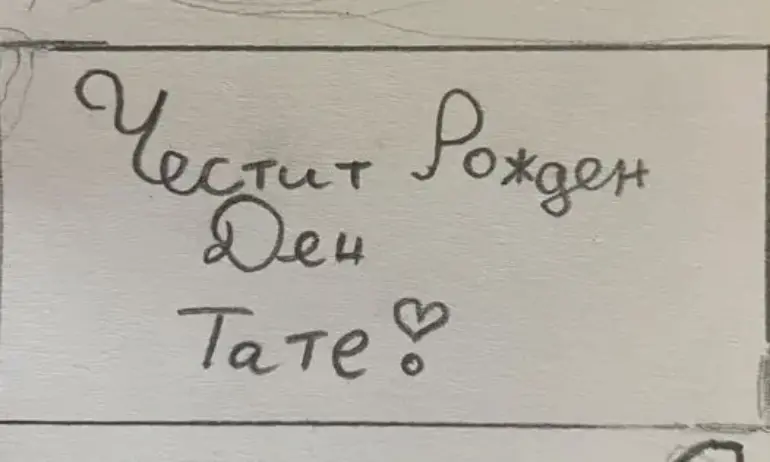 Честит Рожден
Ден
Тате!